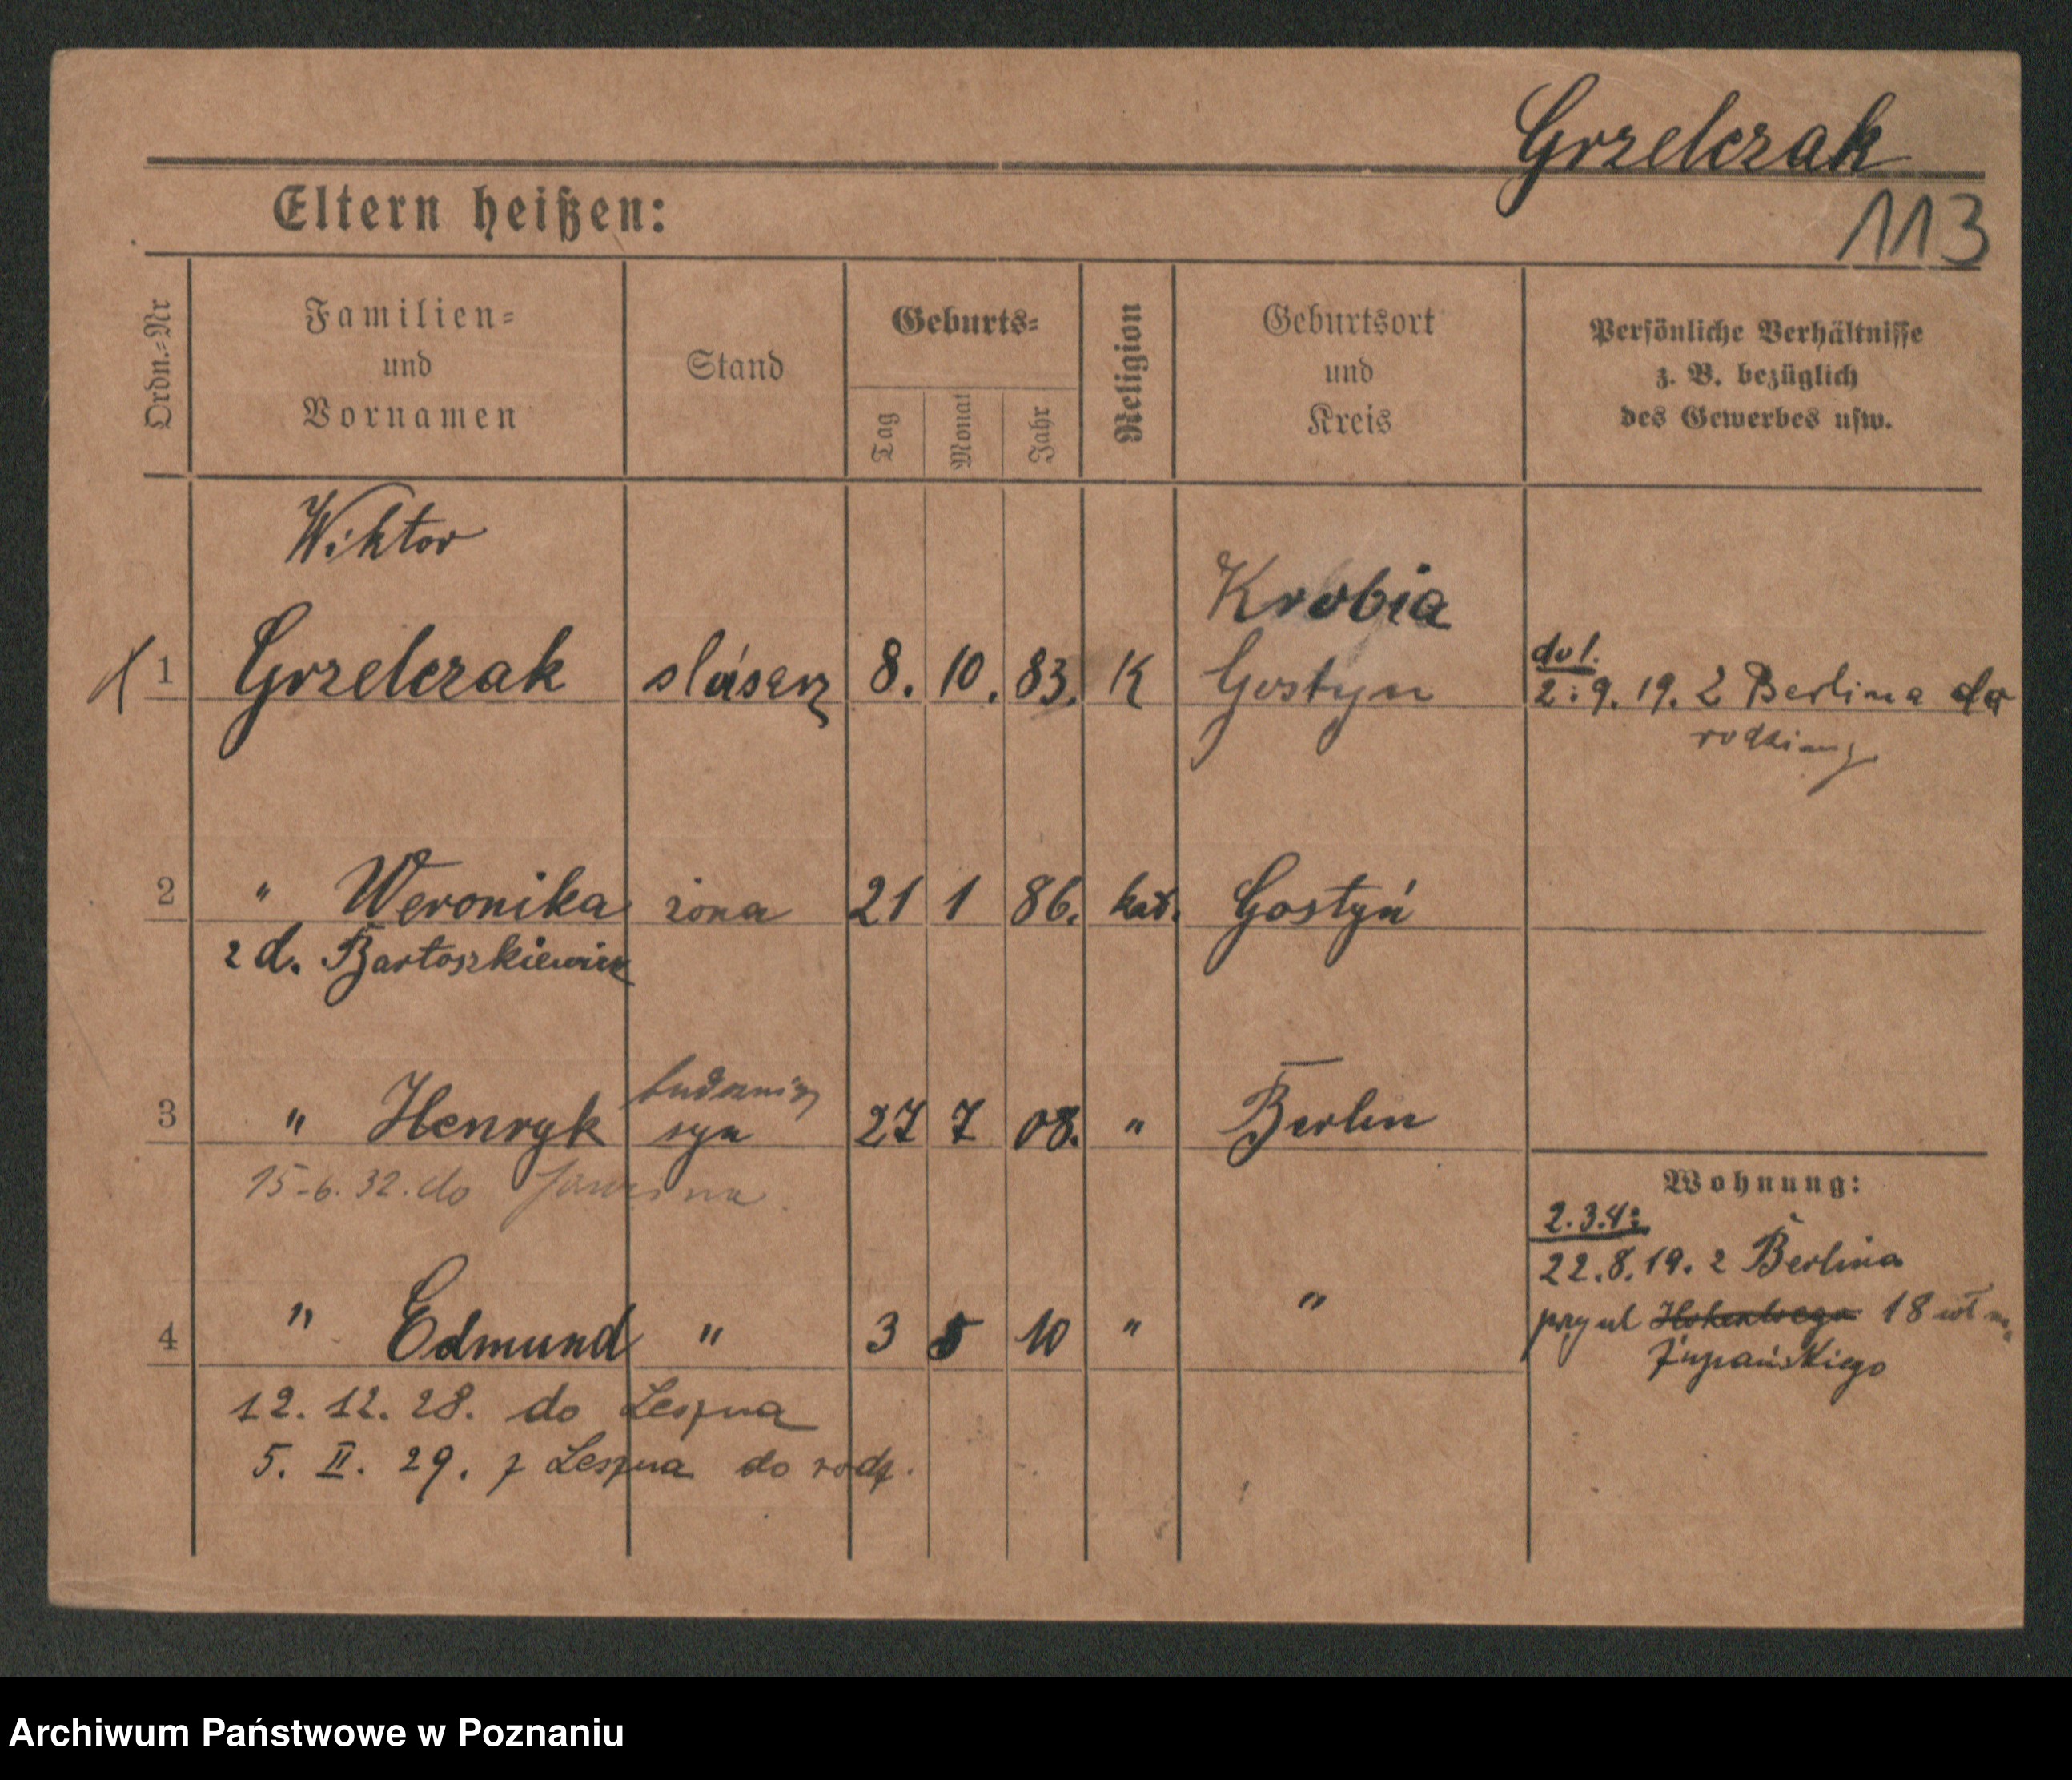 Grzelczak
113
Eltern heißen:
Ordn.=Nr
Familien=
und
Vornamen
Stand
Geburts=
Tag
Monat
Jahr
Religion
Geburtsort
und
Kreis
Persönliche Verhältnisse
z. B. bezüglich
des Gewerbes usw.
Wiktor
Krobia
1 Grzelczak 8. 10. 83. K Gostyn
do 1.
2.9.19. z Berlina do
rodziny
2 " Weronika żona 21 1 86. kat. Gostyń
z d. Bartoszkiewicz
3 " Henryk syn 27 7 08. " Berlin
15.6.32. do
Wohnung:
2.3.4:
22.8.19. z Berlina
przy ul 18
Żupańskiego
4 " Edmund " 3 5 10 " "
12. 12. 28. do Leszna
5. II. 29. z Leszna do rodz.
Archiwum Państwowe w Poznaniu